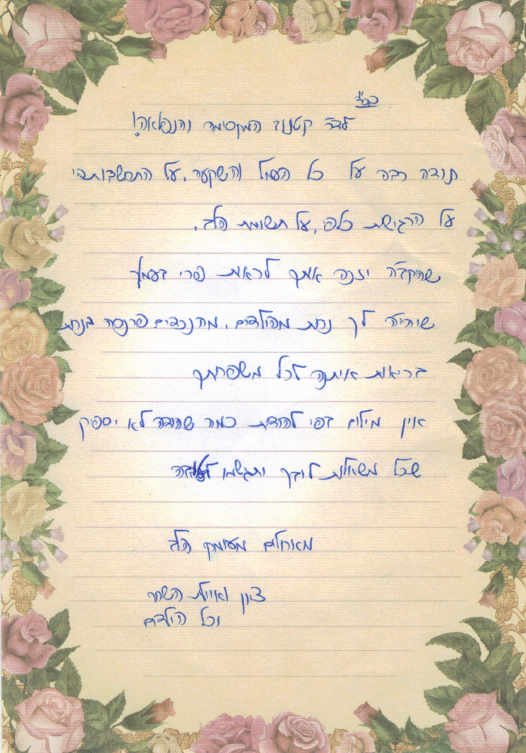 בס"ד
לדר' קטנוב המקסימה והנפלאה!
תודה רבה על כל הטיפול וההשקעה, על התחשבותכי
על הרגישות כלפי, על תשומת הלב.
שהקב"ה יזכה אתך לראות פרי בעמלך
שיהיה לך נחת מהילדים, מהנכדים פרנסה בנחת
בריאות איתנה לכל משפחתך
אין מילים בפי להודות כמה שאודה לא יספיק
שכל משאלות ליבך יתגשמו לטובה
מאחלים מעומק הלב
ציון ואיילת השחר
וכל הילדים